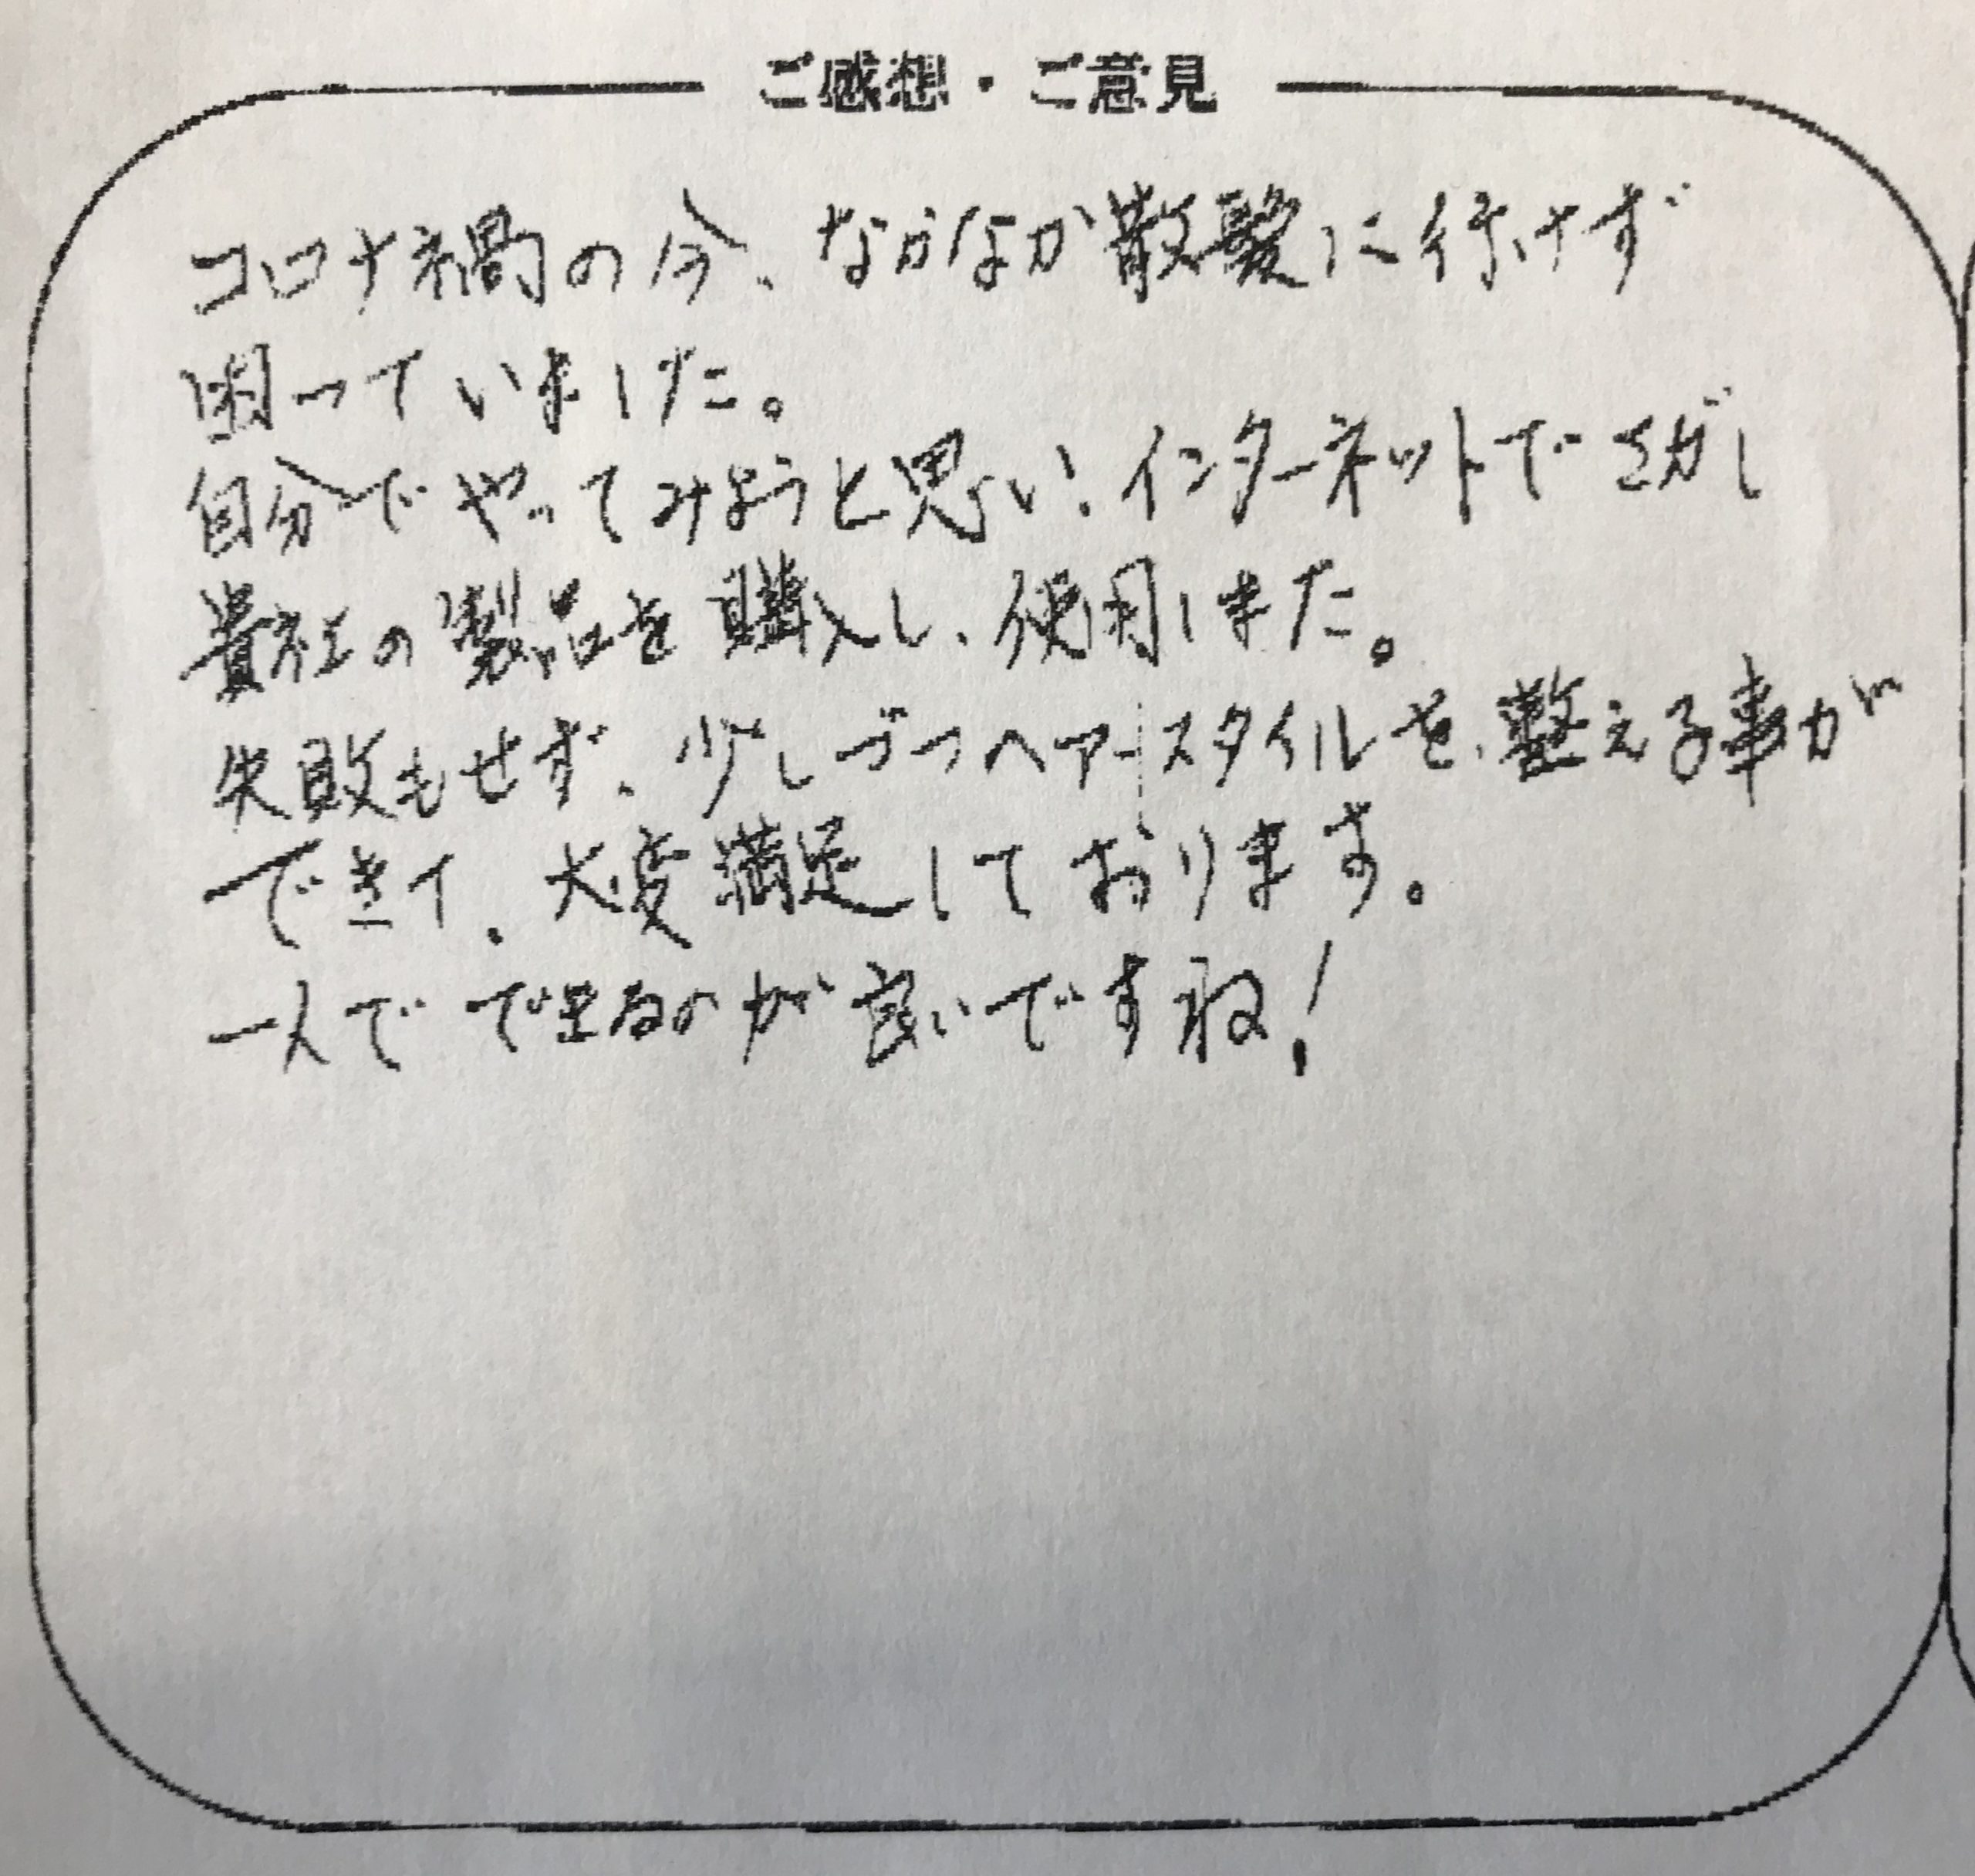 ご感想・ご意見
コロナ禍の今、なかなか散髪に行けず
困っていました。
自分でやってみようと思い、インターネットでさがし
貴社の製品を購入し、使用しました。
失敗もせず、少しづつヘアースタイルを、整える事が
できて、大変満足しております。
一人でできるのが良いですね!